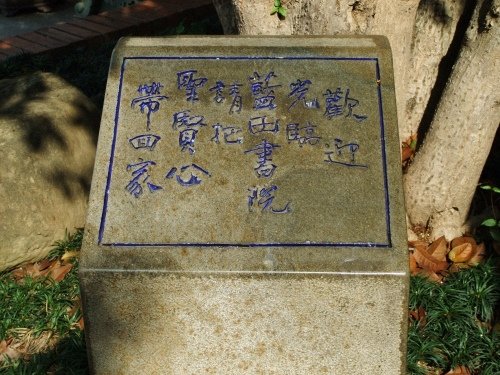 歡迎
光臨
藍田書院
請把
聖賢心
帶回家